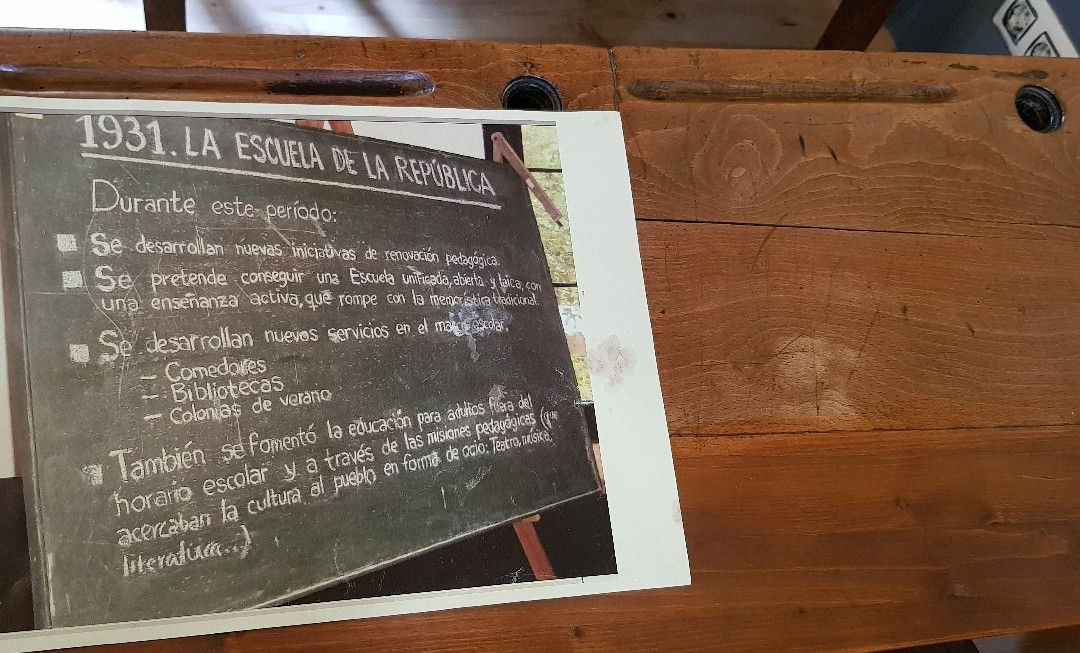 1931. LA ESCUELA DE LA REPÚBLICA
Durante este período:
Se desarrollan nuevas iniciativas de renovación pedagógica.
Se pretende conseguir una Escuela unificada, abierta y laica, con
una enseñanza activa, que rompe con la memorística tradicional.
Se desarrollan nuevos servicios en el marco escolar.
- Comedores
- Bibliotecas
- Colonias de verano
También se fomentó la educación para adultos fuera del
horario escolar y a través de las misiones pedagógicas (que
acercaban la cultura al pueblo en forma de ocio: Teatro, música,
literatura...)